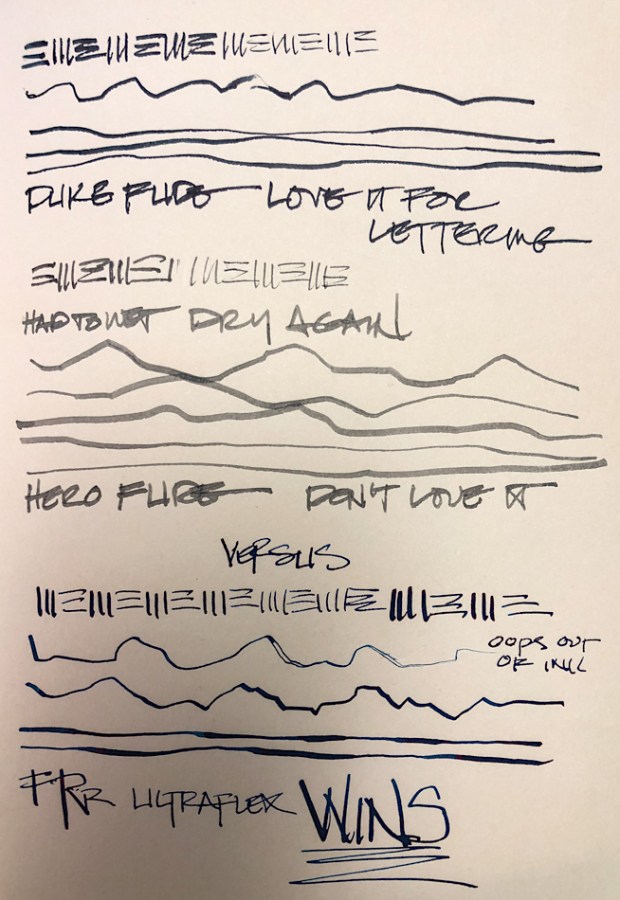 DUKE FUDE LOVE IT FOR
LETTERING
HAD TO WET DRY AGAIN
HERO FUDE DON'T LOVE IT
VERSUS
OOPS OUT
OF INK
FPR ULTRAFLEX WINS